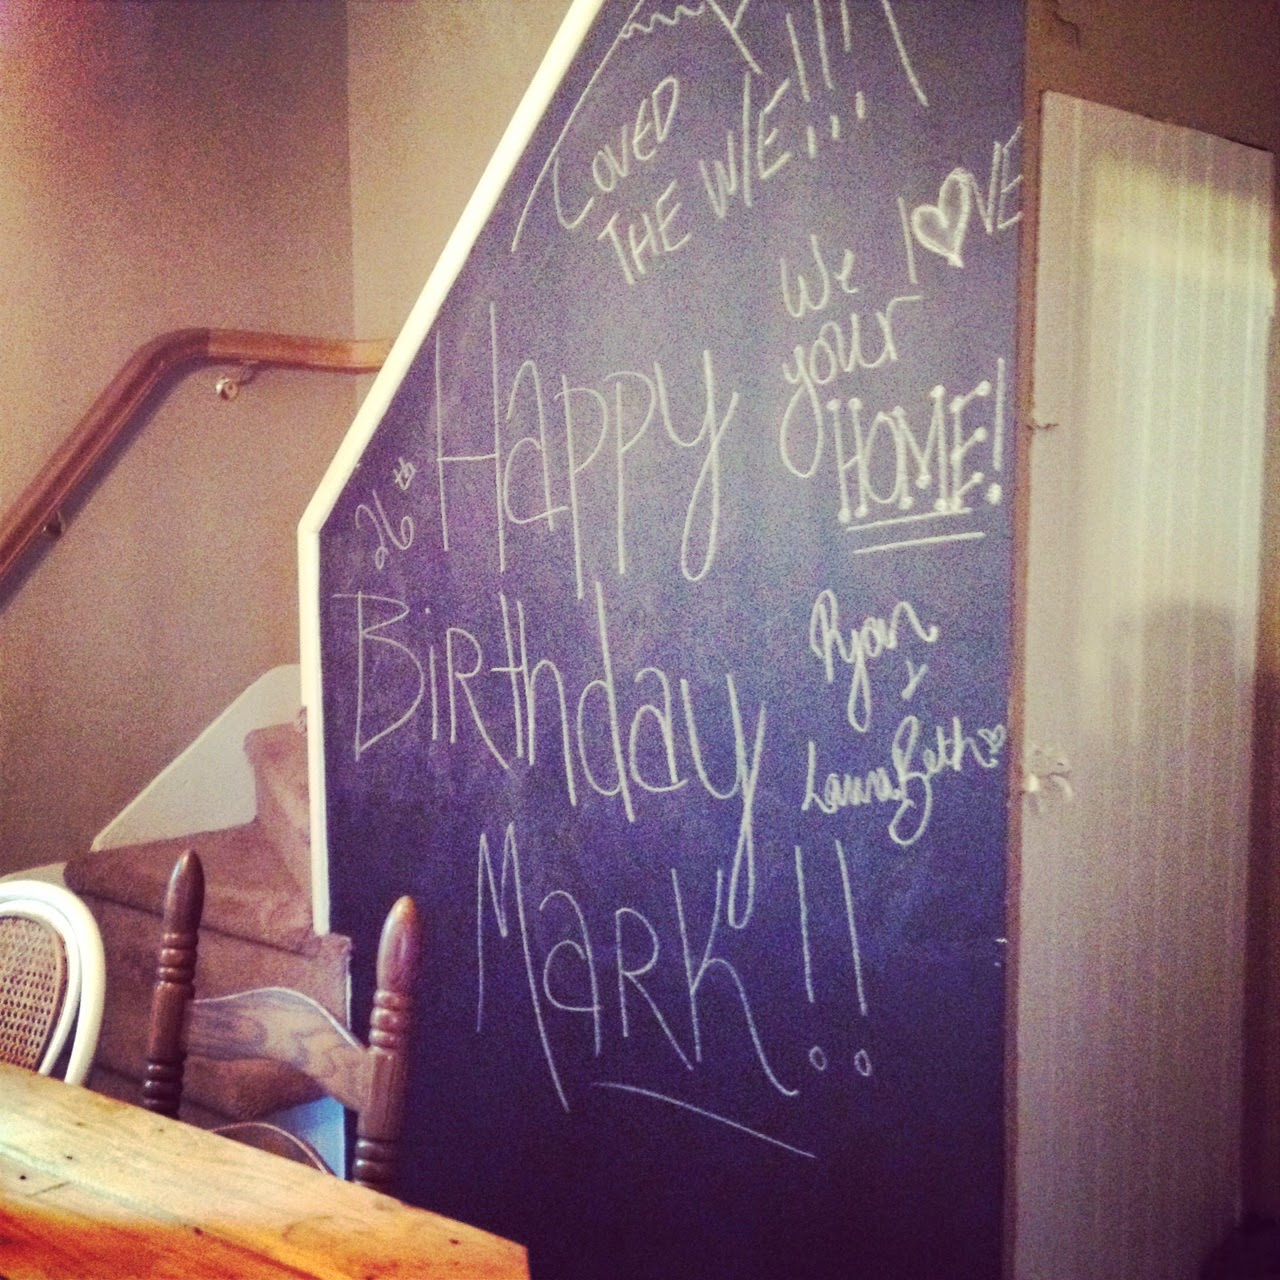 LOVED
THE W/E!!!
We LOVE
your
HOME!
Ryan
+
LauraBeth
26th
Happy
Birthday
Mark!!